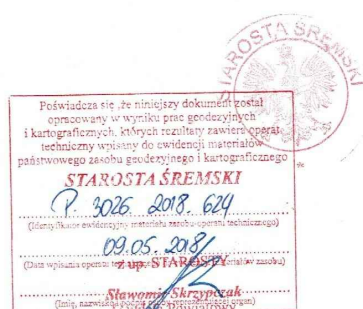 STAROSTA ŚREMSKI
Poświadcza się ,że niniejszy dokument został
opracowany w wyniku prac geodezyjnych
i kartograficznych, których rezultaty zawiera operat
techniczny wpisany do ewidencji materiałów
państwowego zasobu geodezyjnego i kartograficznego
STAROSTA ŚREMSKI
P. 3026. 2018. 624
(Identyfikator ewidencyjny materiału zasobu-operatu technicznego)
09.05. 2018
(Data wpisania operatu materiałów zasobu)
z up. STAROSTY
Sławomir Skrzypczak
(Imię, nazwisko organ)